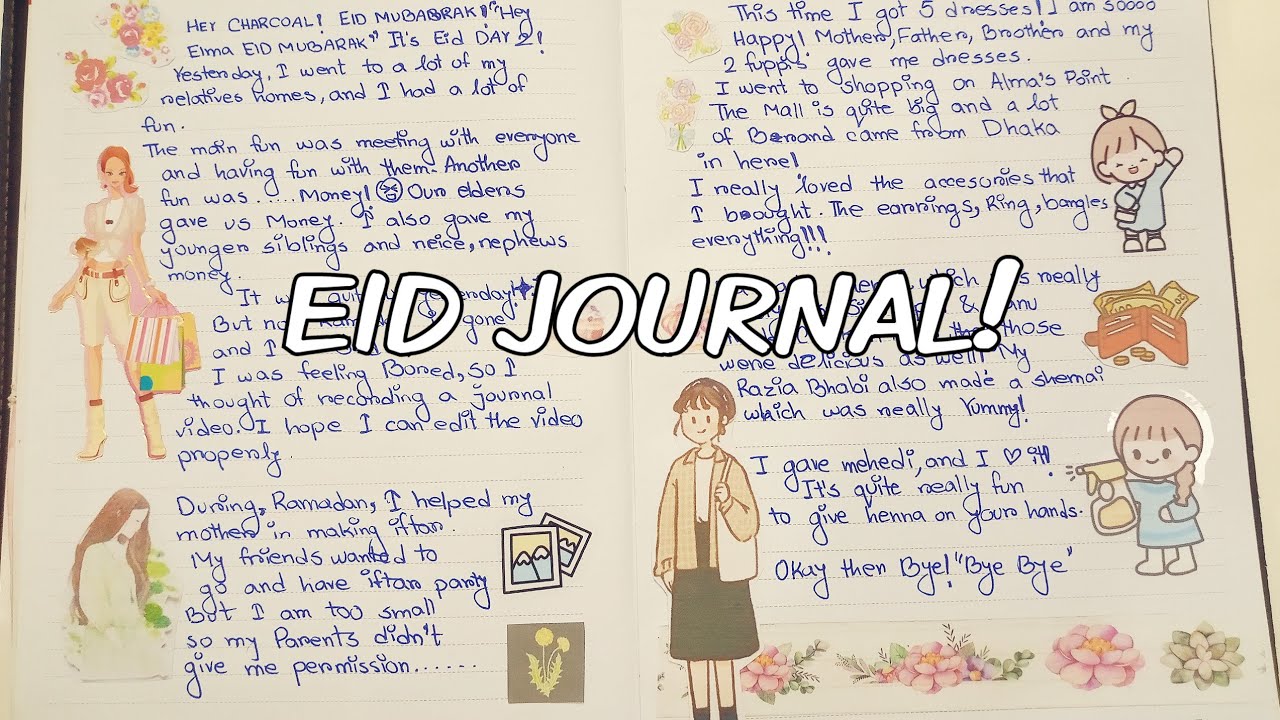 HEY CHARCOAL! EID MUBABRAK! "Hey
Elma EID MUBARAK" It's Eid DAY 2!
Yestenday, I went to a lot of my
relatives homes, and I had a lot of
fun.
The main fun was meeting with everyone
and having fun with them. Another
fun was ..... Money! Our elders
gave us Money. I also gave my
younger siblings and neice, nephews
money.
It
But
and I
I was feeling Bored, so I
thought of recording a journal
video. I hope I can edit the video
properly.
During, Ramadan, I helped my
mother in making iftar.
My friends wanted to
go and have iftar party
But I am too small
so my Parents didn't
give me permission......
This time I got 5 dresses! I am soooo
Happy! Mother, Father, Brother and my
2 fuppi gave me dresses.
I went to shopping on Alma's Point.
The Mall is quite big and a lot
of Brand came from Dhaka
in here!
I really loved the accesories that
I bought. The earrings, Ring, bangles
everything!!!
which is really
&
those
were delicious as well! My
Razia Bhabi also made a shemai
which was really Yummy!
I gave mehedi, and I ♡ it!
It's quite really fun
to give henna on your hands.
Okay then Bye! "Bye Bye"
EID JOURNAL!